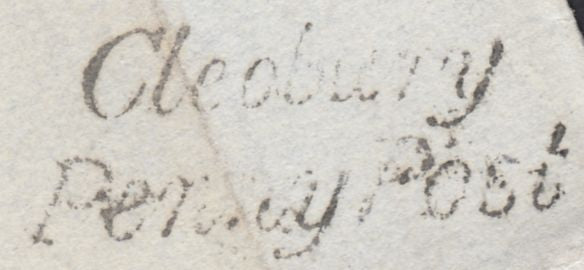 Cleobury
Penny Post